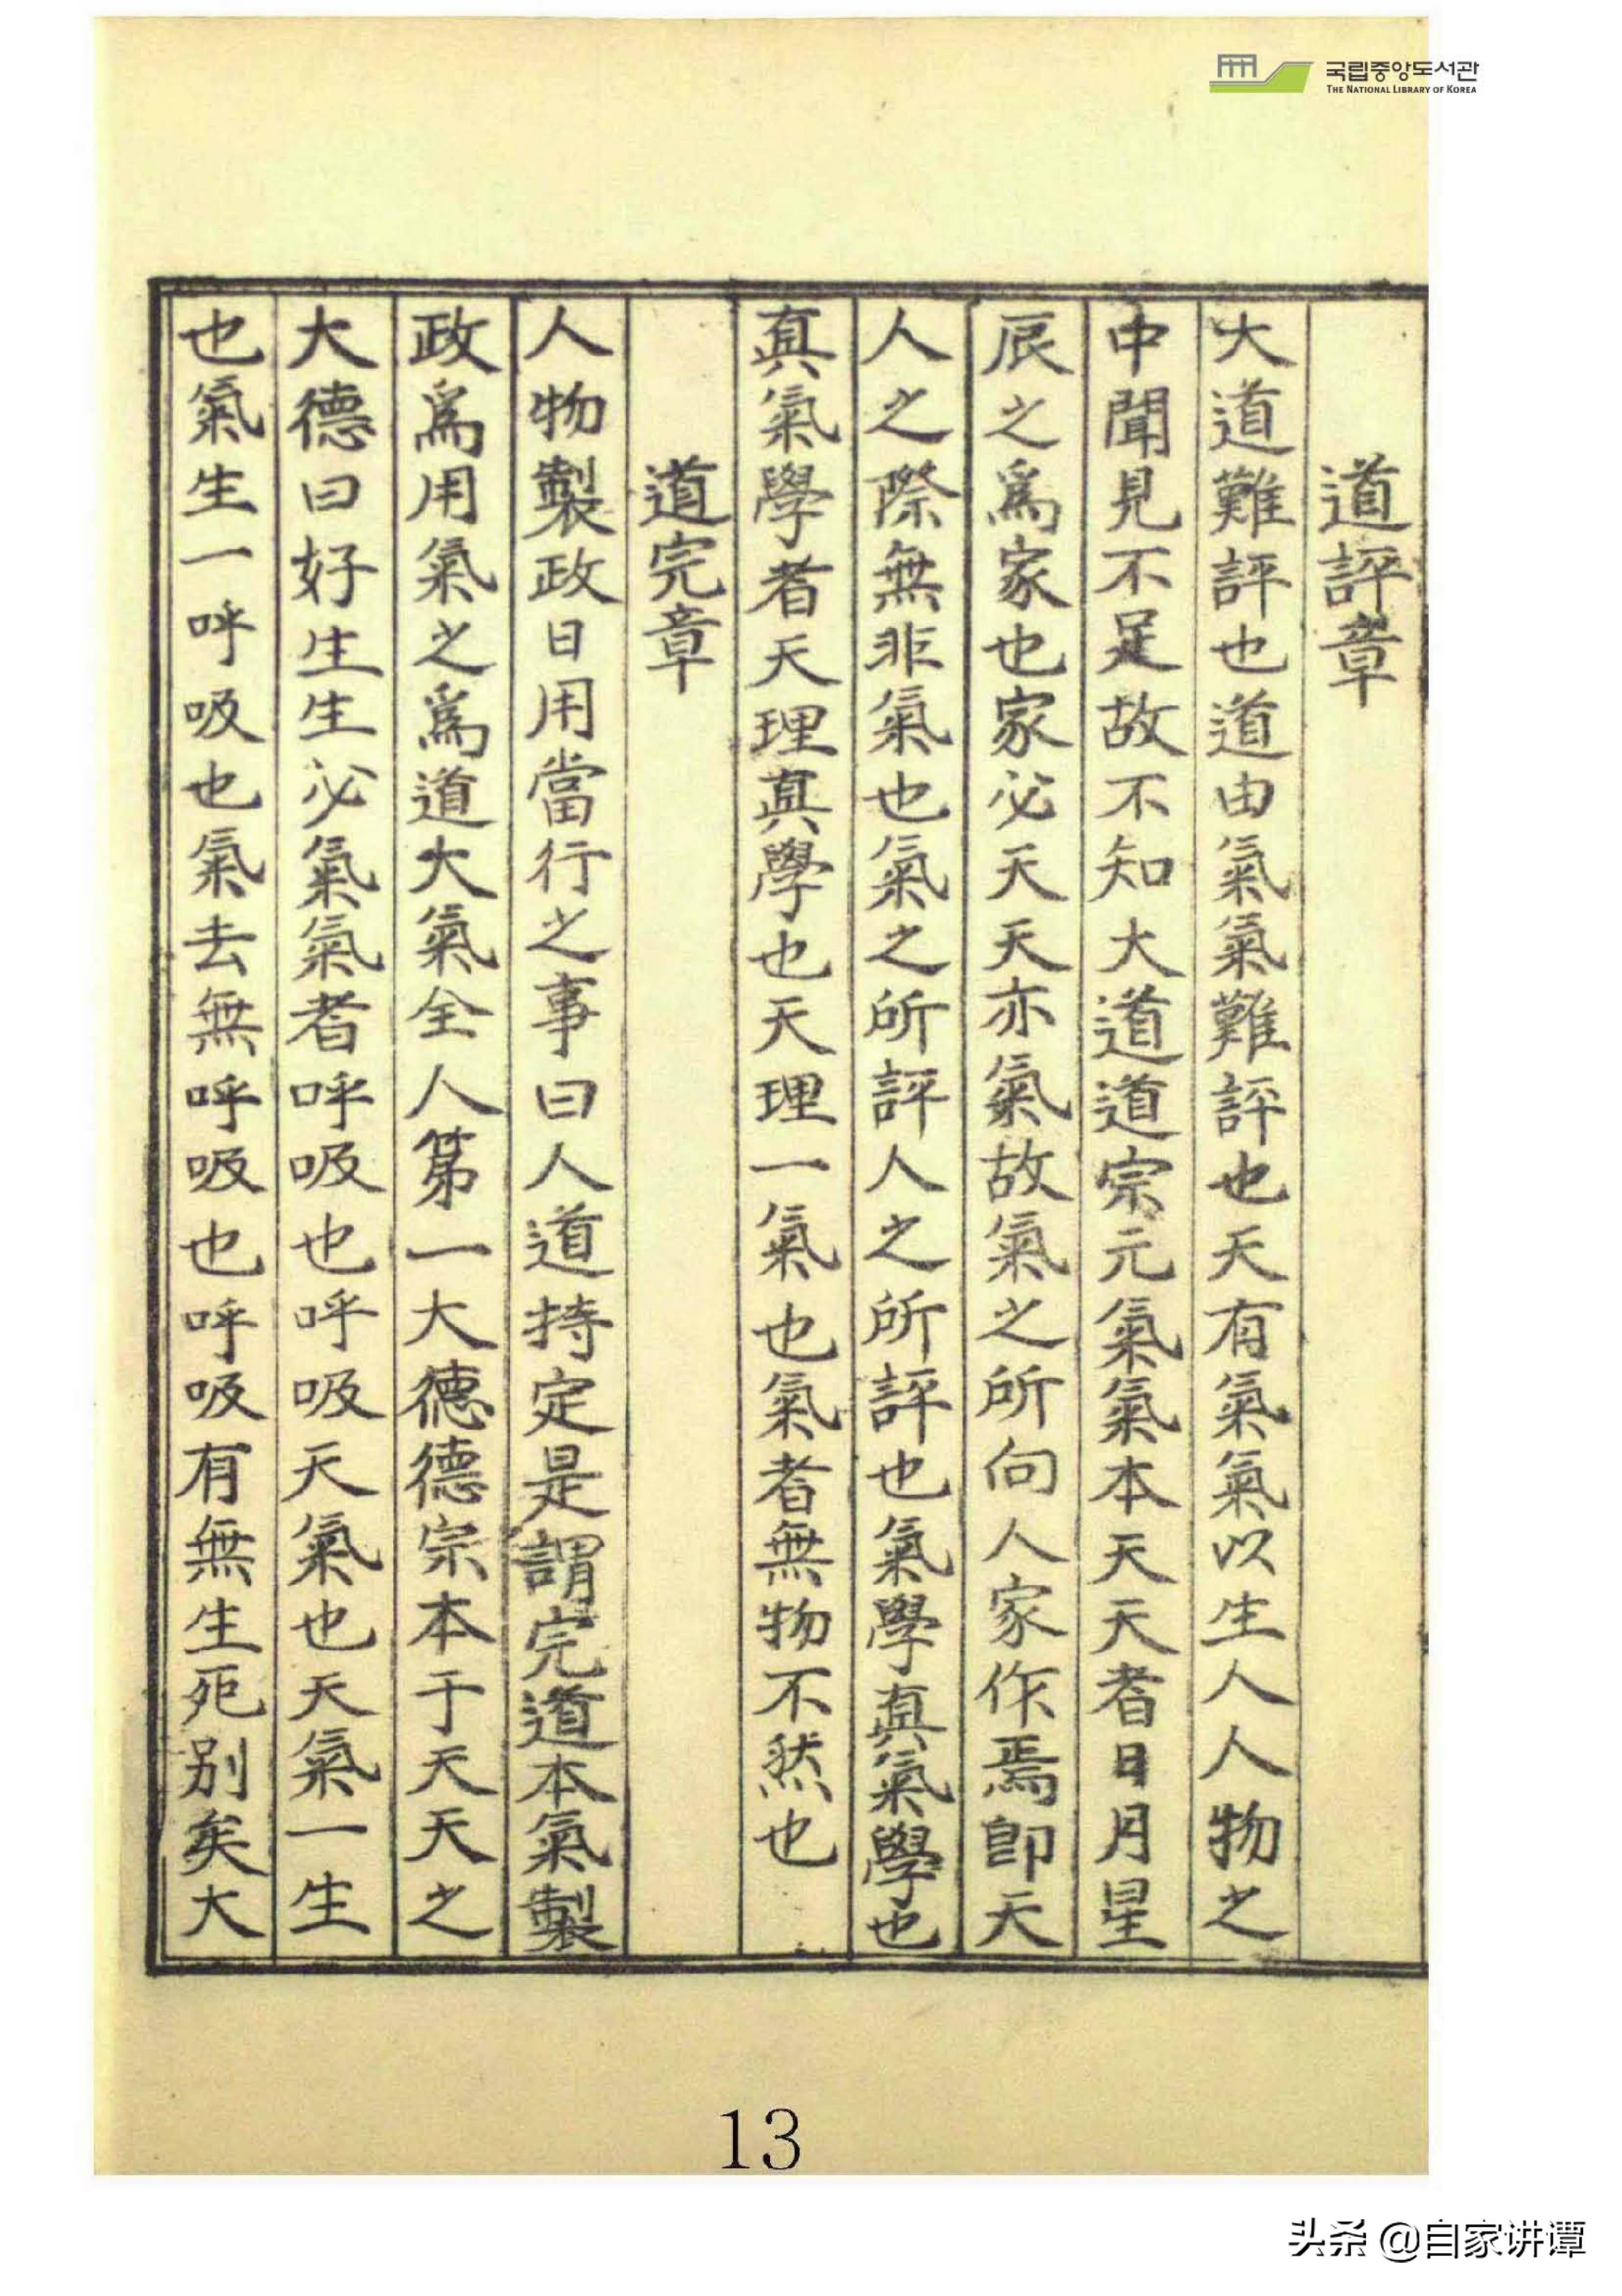 국립중앙도서관
THE NATIONAL LIBRARY OF KOREA
道評章
大道難評也道由氣氣難評也天有氣氣以生人人物之
中聞見不足故不知大道道宗元氣氣本天天者日月星
辰之爲家也家必天天亦氣故氣之所向人家作焉卽天
人之際無非氣也氣之所評人之所評也氣學眞氣學也
眞氣學者天理眞學也天理一氣也氣者無物不然也
道完章
人物製政日用當行之事曰人道持定是謂完道本氣製
政爲用氣之爲道大氣全人第一大德德宗本于天天之
大德曰好生生必氣氣者呼吸也呼吸天氣也天氣一生
也氣生一呼吸也氣去無呼吸也呼吸有無生死別矣大
13
头条 @自家讲谭